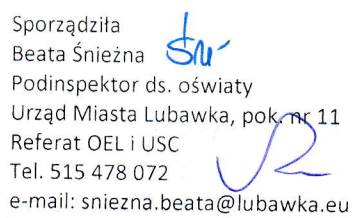 Sporządziła
Beata Śnieżna
Podinspektor ds. oświaty
Urząd Miasta Lubawka, pok. nr 11
Referat OEL i USC
Tel. 515 478 072
e-mail: sniezna.beata@lubawka.eu